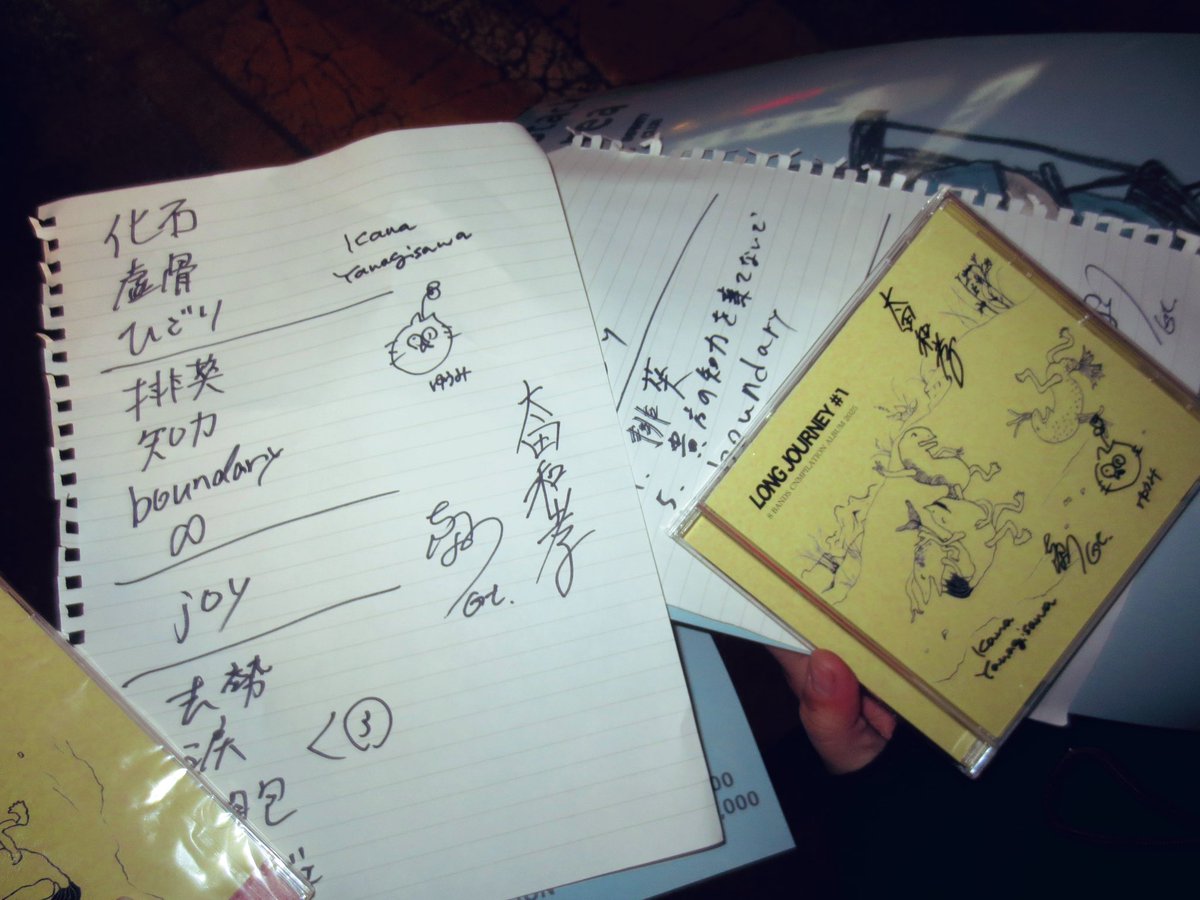 化石
虚骨
ひどり
排英
知力
boundary
∞
joy
去勢
涙
<③
包
Kana
Yanagisawa
ゆうみ
太田和孝
Gt.
排英
5. 貴方の知力を棄てないで
boundary
Gt.
太田和孝
LONG JOURNEY #1
8 BANDS CNMPILATION ALBUM 2025
ゆうみ
Gt.
Kana
Yanagisawa
00
,000